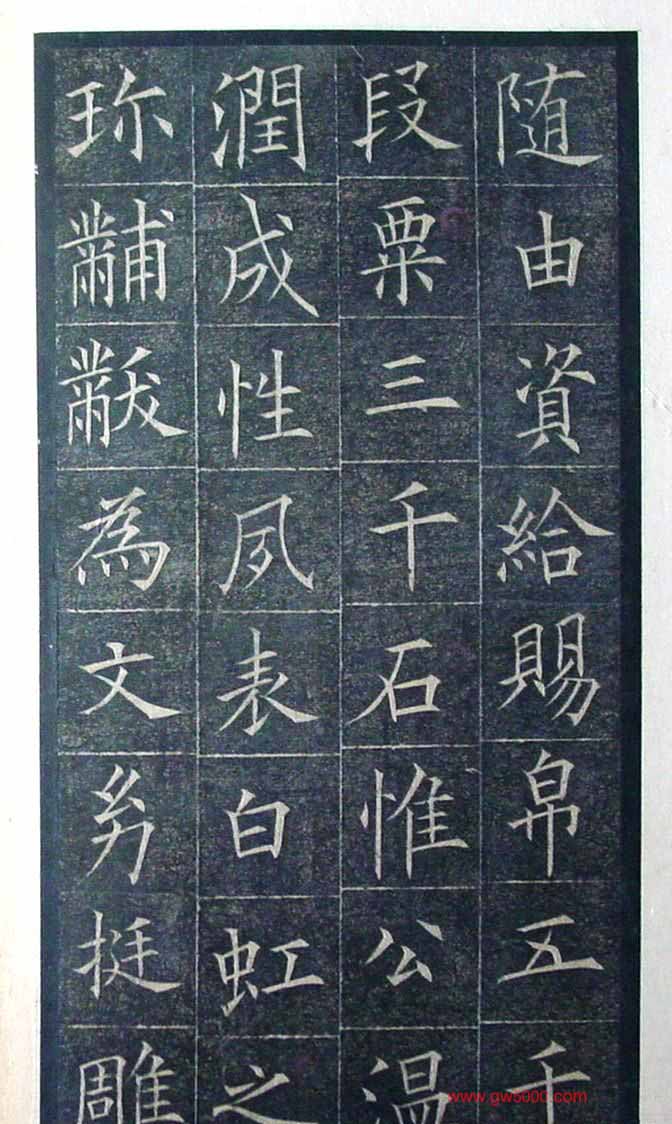 随由資給賜帛五千
段粟三千石惟公温
潤成性夙表白虹之
珎黼黻為文㓜挺雕
www.gw5000.com